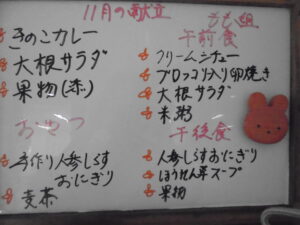 11月の献立
きのこカレー
大根サラダ
果物(赤)
おやつ
手作り人参しらす
おにぎり
麦茶
もも組
午前食
クリームシチュー
ブロッコリ入り卵焼き
大根サラダ
米粥
午後食
人参しらすおにぎり
ほうれん草スープ
果物